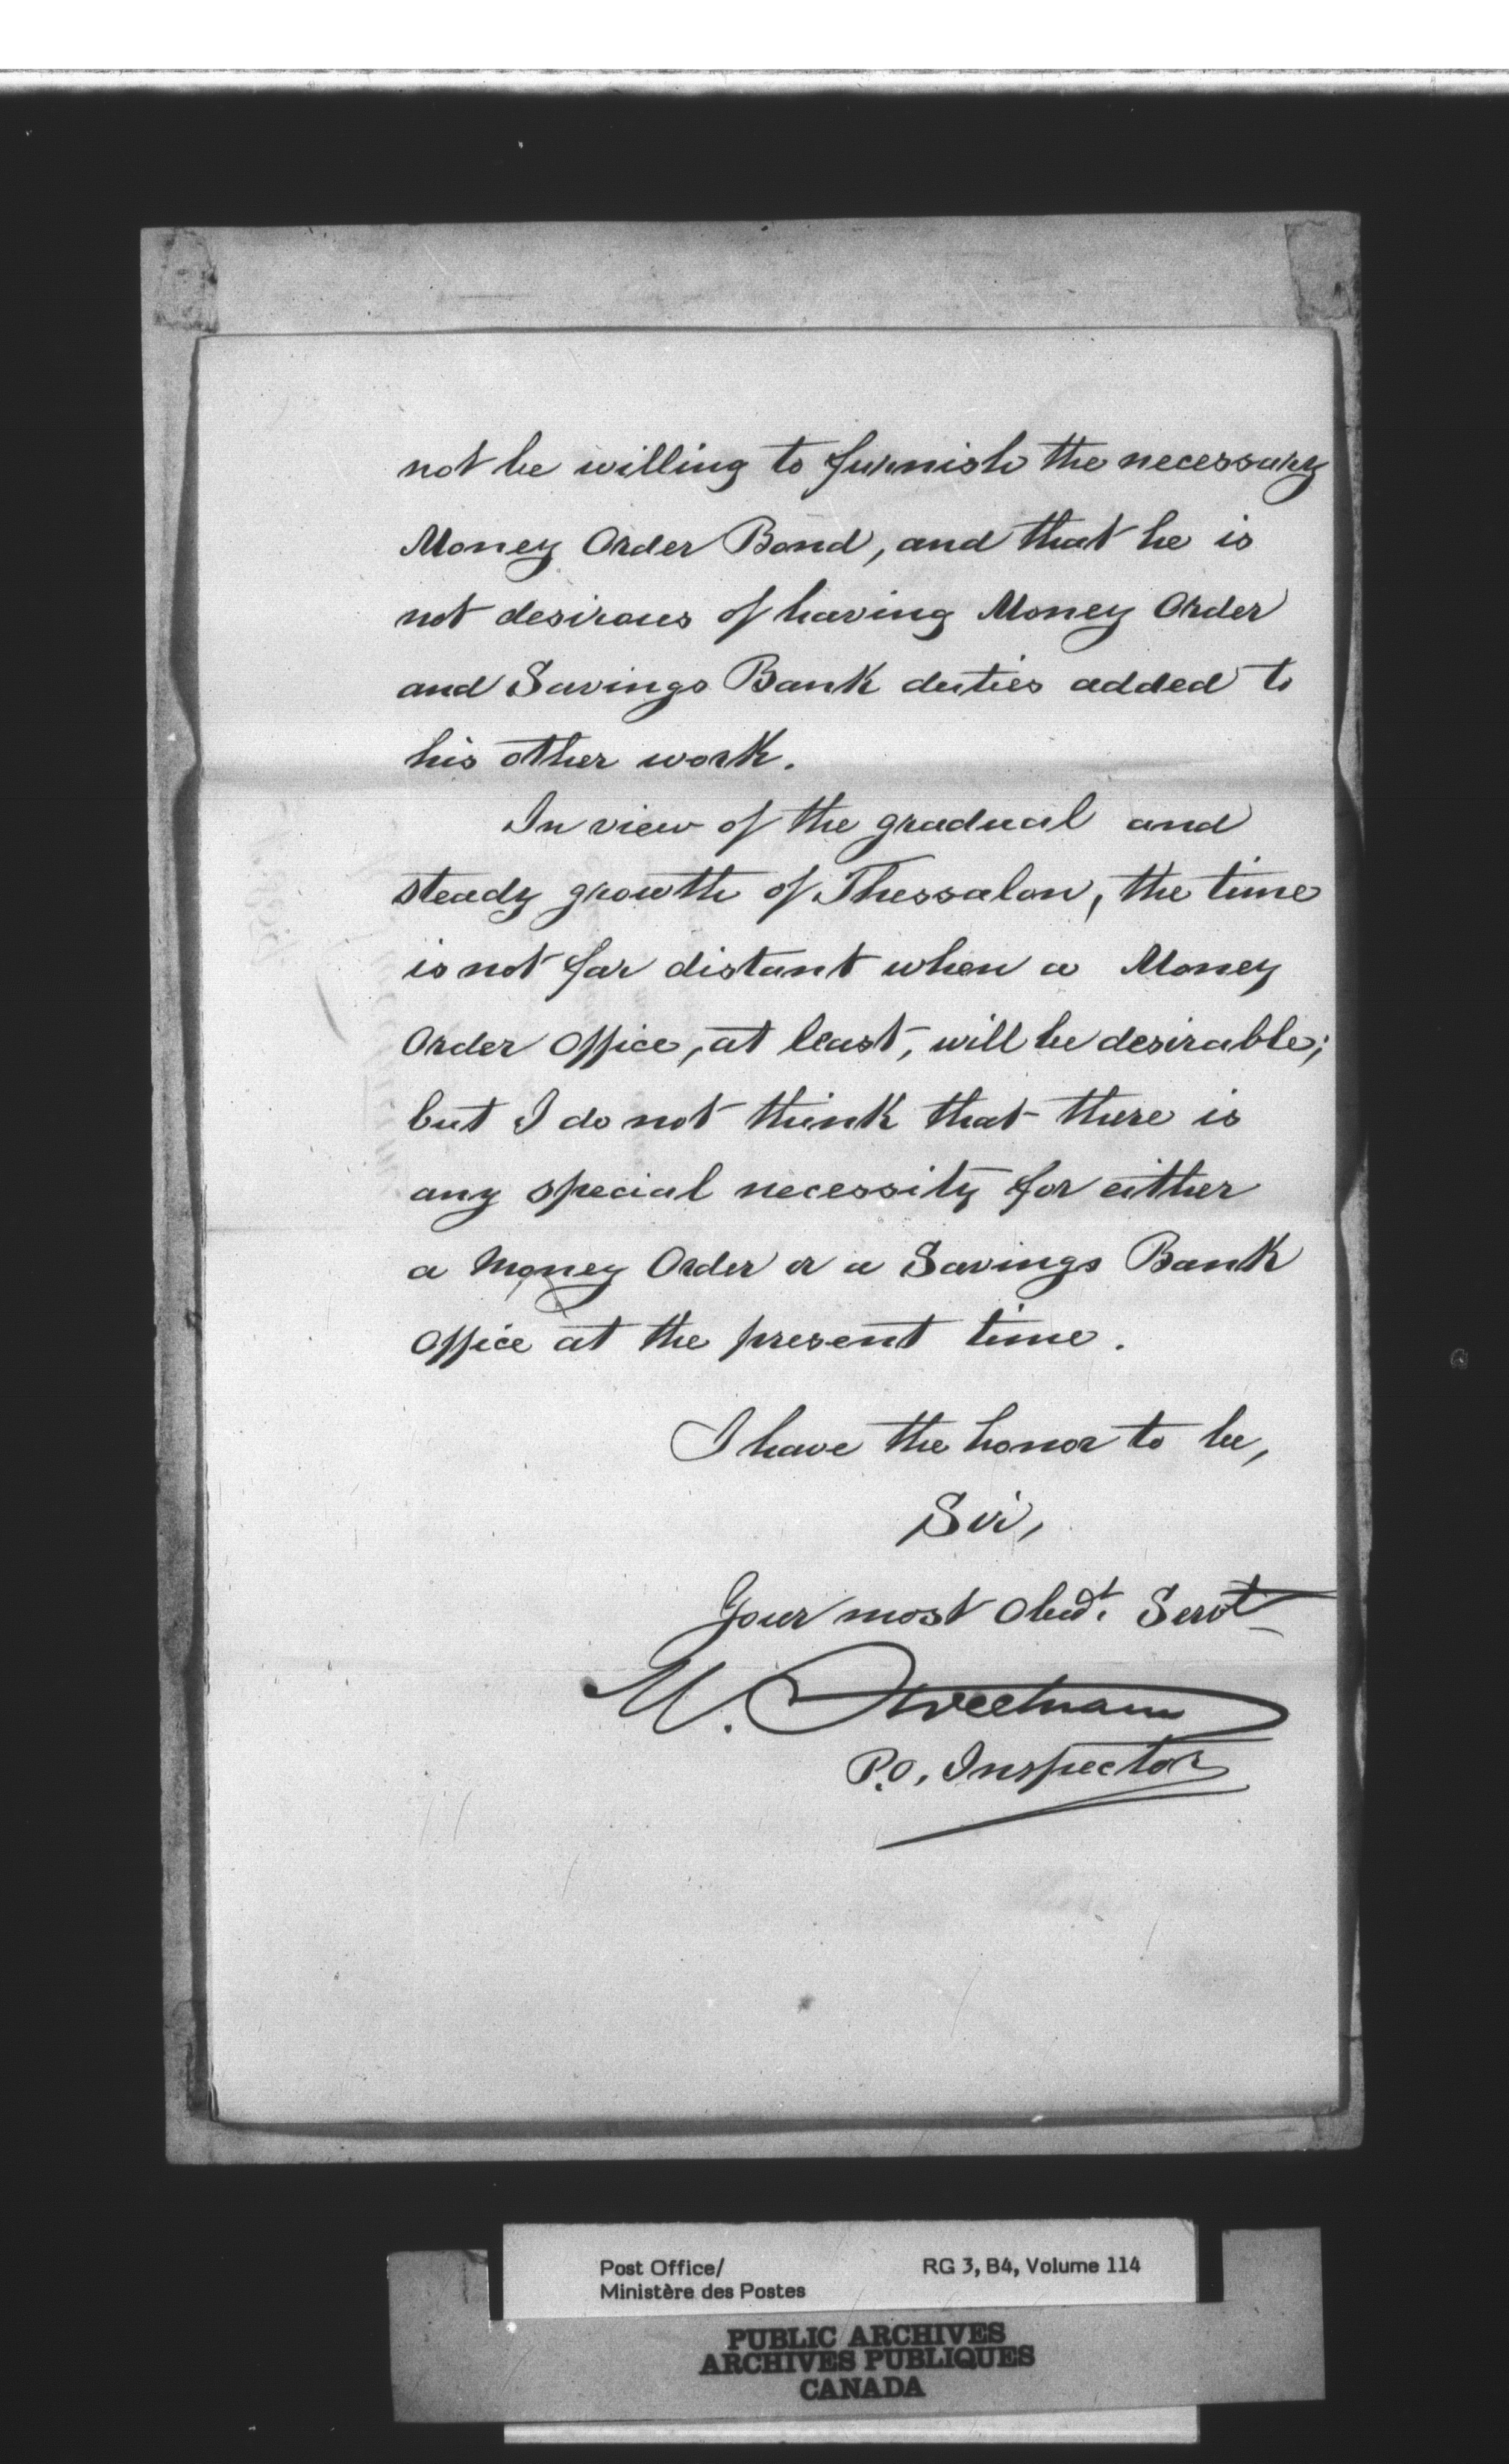 not be willing to furnish the necessary
Money Order Bond, and that he is
not desirous of having Money Order
and Savings Bank duties added to
his other work.
In view of the gradual and
steady growth of Thessalon, the time
is not far distant when a Money
Order Office, at least, will be desirable;
but I do not think that there is
any special necessity for either
a Money Order or a Savings Bank
Office at the present time.
I have the honor to be,
Sir,
Your most Obedt. Servt
M. Sweetnam
P.O. Inspector
Post Office/ RG 3, B4, Volume 114
Ministère des Postes
PUBLIC ARCHIVES
ARCHIVES PUBLIQUES
CANADA